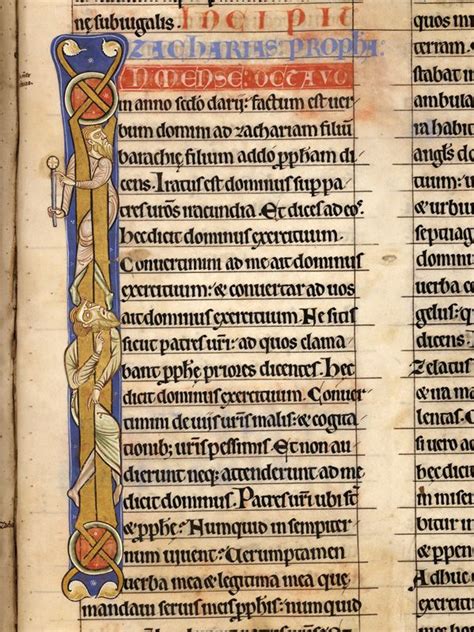 nę subiugalis. INCIPIT
ZACHARIAS: PROPHA:
IN MENSE: OCTAVO
In anno scdo darij: factum est uer
bum domini ad zachariam filiu
barachię filium addo ppham di
cens. Iratus est dominus sup pa
tres uros iracundia. Et dices ad eos.
Hec dicit dominus exercituum.
Conuertimini ad me ait dominus
exercituum: & conuertar ad uos
ait dominus exercituum. Ne sitis
sicut patres uri: ad quos clama
bant pphę priores dicentes. Hec
dicit dominus exercituum. Conuer
timini de uiis uris malis: & cogita
tionib; uris pessimis. Et non au
dierunt neq; attenderunt ad me
dicit dominus. Patres uri ubi st
& pphę: Nunquid in sempiter
num uiuent: Verumptamen
uerba mea & legitima mea quę
mandaui seruis meis pphis: nunquid
quos
terram.
stabat
ambula
ra habit
angls
tium: u
& urbiu
septuag
uerba
gelus:
dicens.
Zelatus
& ma
lentas.
si uero
hec dicit
in miser
bitur in
& ppen
Adhuc